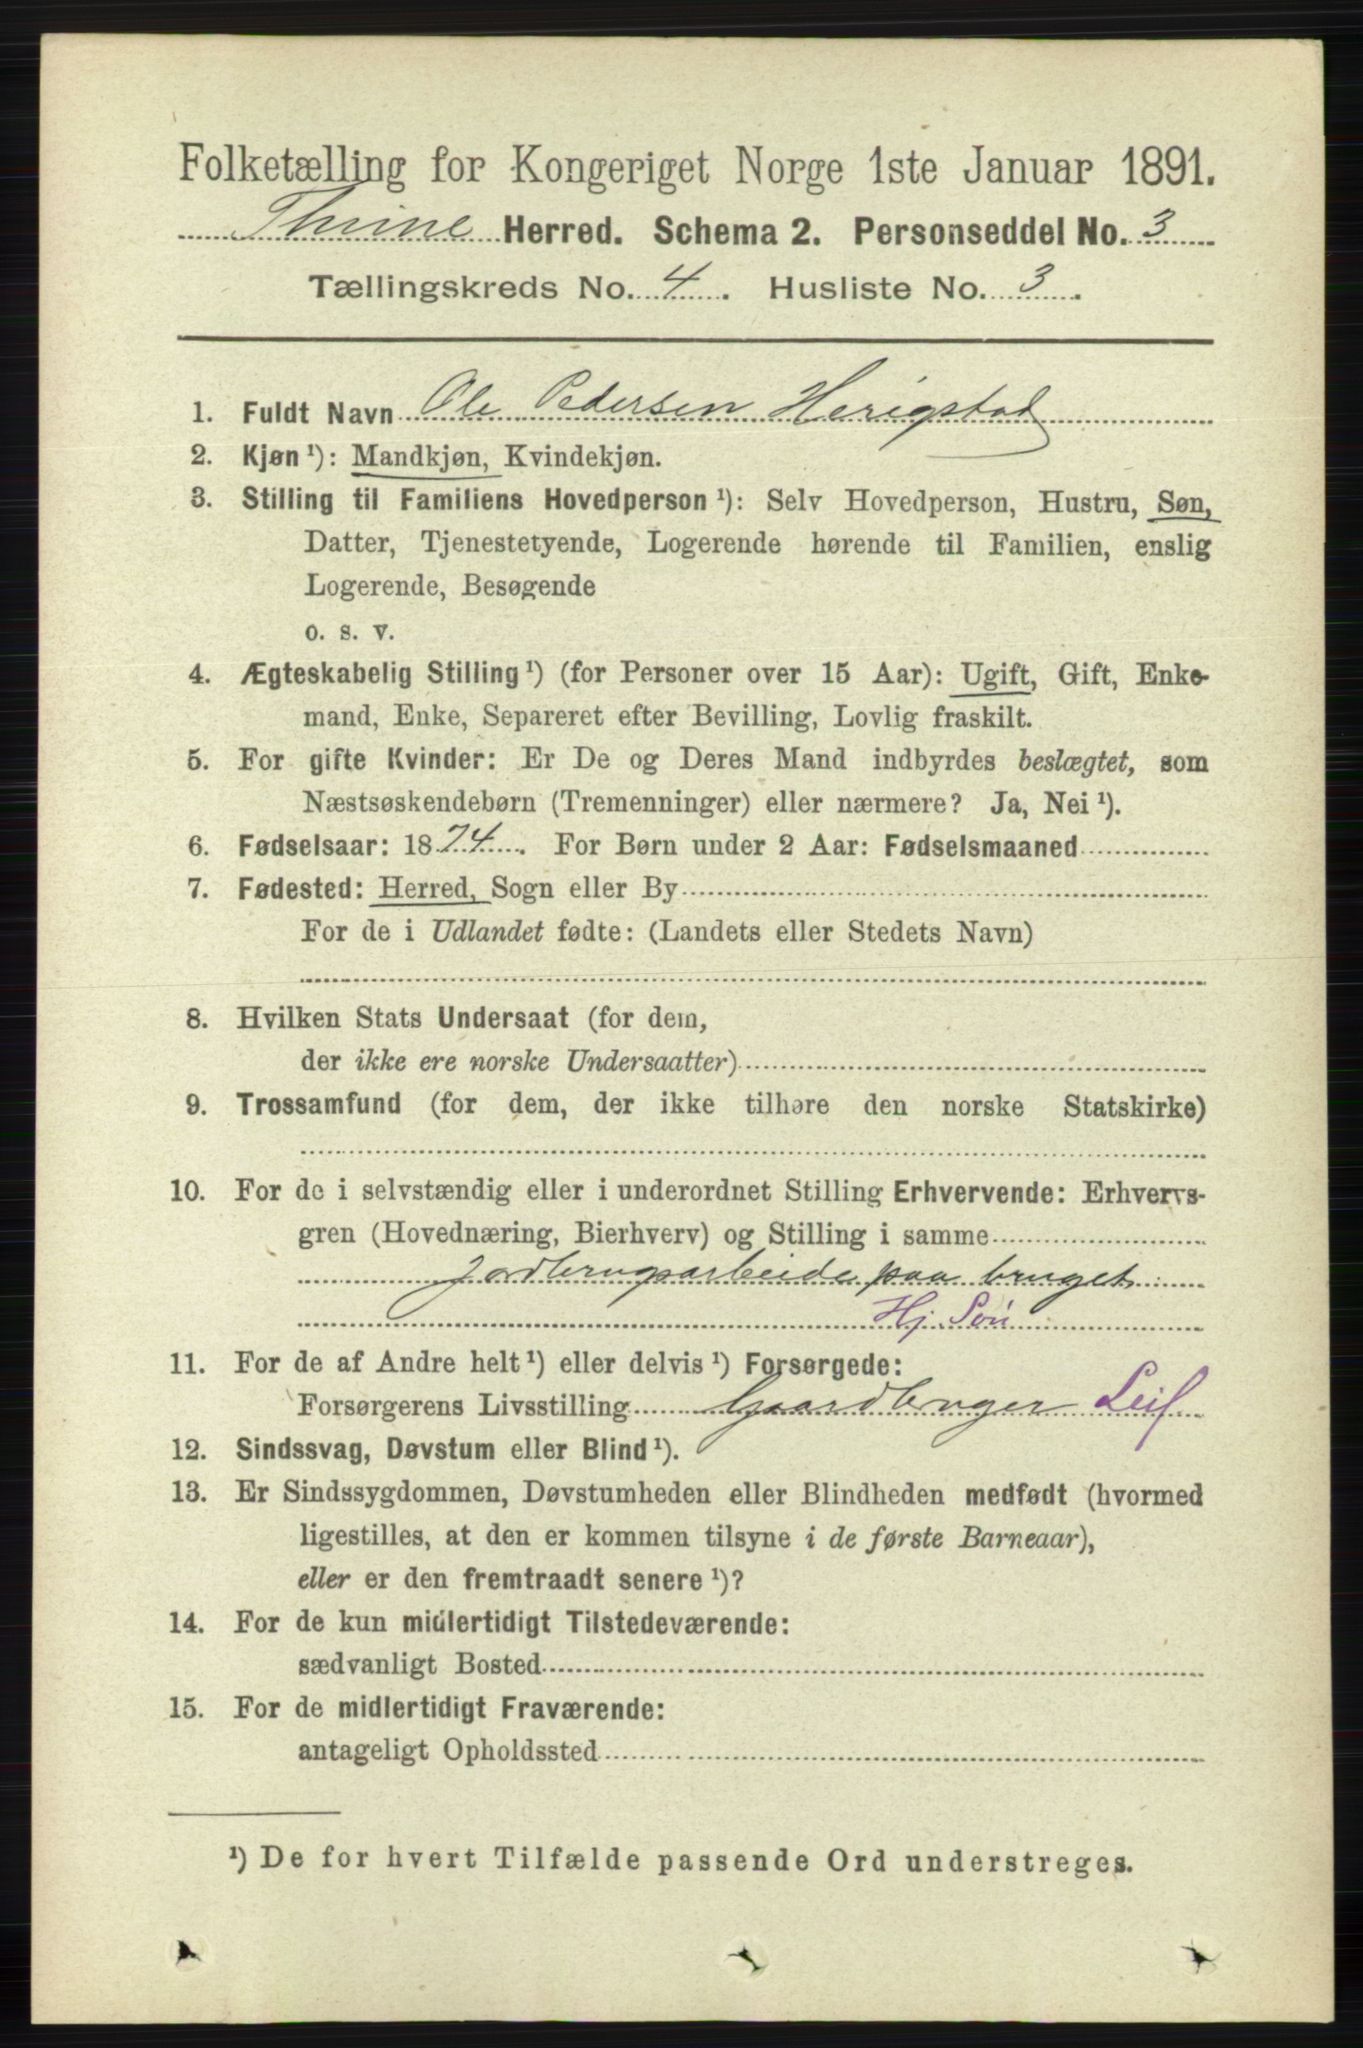 Folketælling for Kongeriget Norge 1ste Januar 1891.
Thime Herred. Schema 2. Personseddel No. 3
Tællingskreds No. 4. Husliste No. 3.
1. Fuldt Navn Ole Pedersen Herigstad
2. Kjøn ¹): Mandkjøn, Kvindekjøn.
3. Stilling til Familiens Hovedperson ¹): Selv Hovedperson, Hustru, Søn,
Datter, Tjenestetyende, Logerende hørende til Familien, enslig
Logerende, Besøgende
o. s. v.
4. Ægteskabelig Stilling ¹) (for Personer over 15 Aar): Ugift, Gift, Enke-
mand, Enke, Separeret efter Bevilling, Lovlig fraskilt.
5. For gifte Kvinder: Er De og Deres Mand indbyrdes beslægtet, som
Næstsøskendebørn (Tremenninger) eller nærmere? Ja, Nei ¹).
6. Fødselsaar: 1874. For Børn under 2 Aar: Fødselsmaaned
7. Fødested: Herred, Sogn eller By
For de i Udlandet fødte: (Landets eller Stedets Navn)
8. Hvilken Stats Undersaat (for dem,
der ikke ere norske Undersaatter)
9. Trossamfund (for dem, der ikke tilhøre den norske Statskirke)
10. For de i selvstændig eller i underordnet Stilling Erhvervende: Erhvervs-
gren (Hovednæring, Bierhverv) og Stilling i samme
Jordbrugsarbeide paa bruget
Hj. Søn
11. For de af Andre helt ¹) eller delvis ¹) Forsørgede:
Forsørgerens Livsstilling Gaardbruger Leif
12. Sindssvag, Døvstum eller Blind ¹).
13. Er Sindssygdommen, Døvstumheden eller Blindheden medfødt (hvormed
ligestilles, at den er kommen tilsyne i de første Barneaar),
eller er den fremtraadt senere ¹)?
14. For de kun midlertidigt Tilstedeværende:
sædvanligt Bosted
15. For de midlertidigt Fraværende:
antageligt Opholdssted
¹) De for hvert Tilfælde passende Ord understreges.